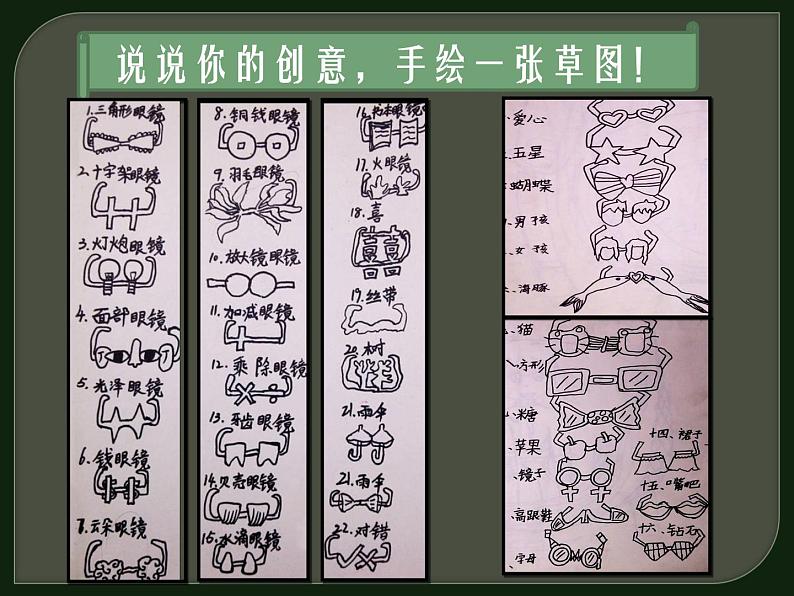 说说你的创意，手绘一张草图！
1.三角形眼镜
2.十字架眼镜
3.灯炮眼镜
4.面部眼镜
5.光泽眼镜
6.钱眼镜
7.云朵眼镜
8.铜钱眼镜
9.羽毛眼镜
10.放大镜眼镜
11.加减眼镜
12.乘除眼镜
13.牙齿眼镜
14.贝壳眼镜
15.水滴眼镜
16.书本眼镜
17.火眼镜
18.喜
19.丝带
20.树
21.雨伞
21.雨伞
22.对错
爱心
五星
蝴蝶
男孩
女孩
海豚
猫
方形
糖
苹果
镜子
高跟鞋
字母
十四、裙子
十五、嘴吧
十六、钻石